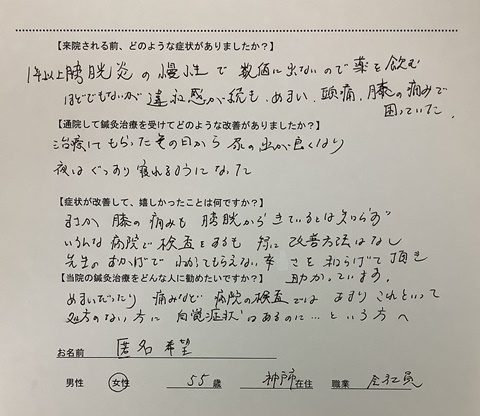 【来院される前、どのような症状がありましたか？】
1年以上膀胱炎の慢性で数値に出ないので薬を飲む
ほどでもないが違和感が続き、めまい、頭痛、膝の痛みで
困っていた。
【通院して鍼灸治療を受けてどのような改善がありましたか？】
治療してもらったその日から尿の出が良くなり
夜はぐっすり寝れるようになった
【症状が改善して、嬉しかったことは何ですか？】
まさか膝の痛みも膀胱からきているとは知らず
いろんな病院で検査をするも特に改善方法はなし
先生のおかげでわかってもらえない辛さを和らげて頂き
助かっています。
【当院の鍼灸治療をどんな人に勧めたいですか？】
めまいだったり痛みなど病院の検査ではあまりこれといって
処方のない方に自覚症状はあるのに…という方へ
お名前 匿名希望
男性 女性 55歳 神戸市在住 職業 会社員